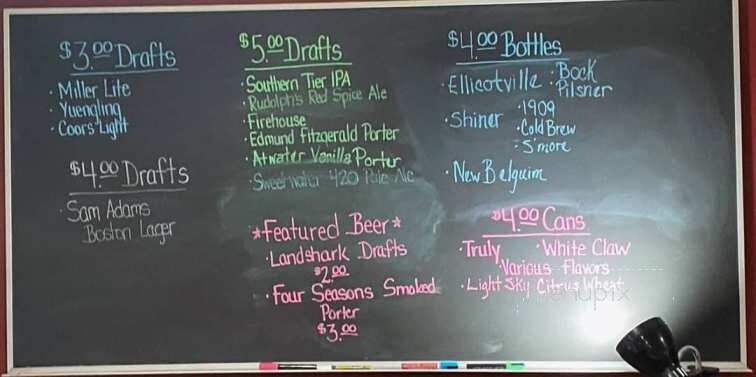 $3.00 Drafts
· Miller Lite
· Yuengling
· Coors Light
$4.00 Drafts
· Sam Adams
Boston Lager
$5.00 Drafts
· Southern Tier IPA
· Rudolph's Red Spice Ale
· Firehouse
· Edmund Fitzgerald Porter
· Atwater Vanilla Porter
· Sweetwater 420 Pale Ale
*Featured Beer*
· Landshark Drafts
$2.00
· Four Seasons Smoked
Porter
$3.00
$4.00 Bottles
· Ellicotville · Bock
· Pilsner
· Shiner · 1909
· Cold Brew
· S'more
· New Belguim
$4.00 Cans
· Truly · White Claw
· Various Flavors
· Light Sky Citrus Wheat
menupix